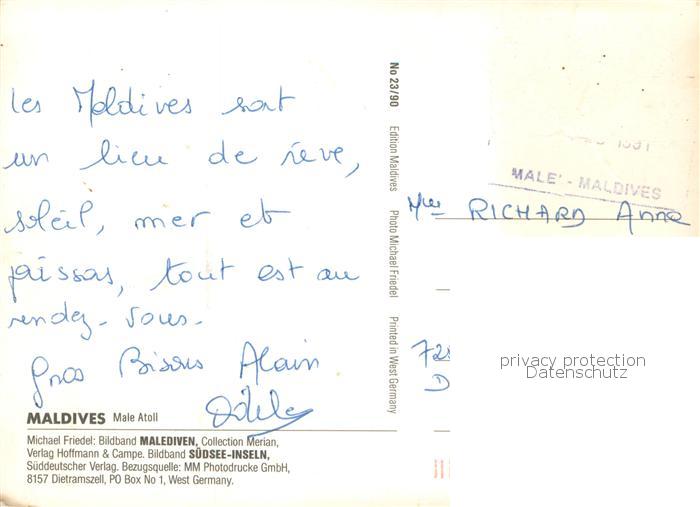 les Maldives sont
un lieu de rêve,
soleil, mer et
poissons, tout est au
rendez-vous.
Gros Bisous Alain
Odile
MALDIVES Male Atoll
Michael Friedel: Bildband MALEDIVEN, Collection Merian,
Verlag Hoffmann & Campe. Bildband SÜDSEE-INSELN,
Süddeutscher Verlag. Bezugsquelle: MM Photodrucke GmbH,
8157 Dietramszell, PO Box No 1, West Germany.
No 23/90 Edition Maldives Photo Michael Friedel Printed in West Germany
1991
MALE' - MALDIVES
Mlle RICHARD Anne
72
D
privacy protection
Datenschutz